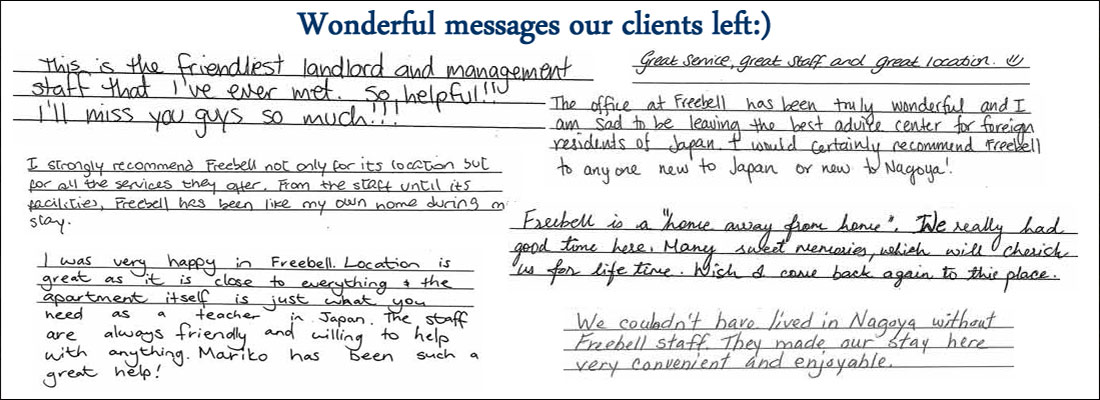 Wonderful messages our clients left:)
This is the friendliest landlord and management
staff that I've ever met. So helpful!!!
I'll miss you guys so much!!!
Great service, great staff and great location.
The office at Freebell has been truly wonderful and I
am sad to be leaving the best advice center for foreign
residents of Japan. I would certainly recommend Freebell
to anyone new to Japan or new to Nagoya!
I strongly recommend Freebell not only for its location but
for all the services they offer. From the staff until its
facilities, Freebell has been like my own home during m
stay.
Freebell is a "home away from home". We really had
good time here. Many sweet memories, which will cherish
us for life time. Wish I come back again to this place.
I was very happy in Freebell. Location is
great as it is close to everything & the
apartment itself is just what you
need as a teacher in Japan. The staff
are always friendly and willing to help
with anything. Mariko has been such a
great help!
We couldn't have lived in Nagoya without
Freebell staff. They made our stay here
very convenient and enjoyable.